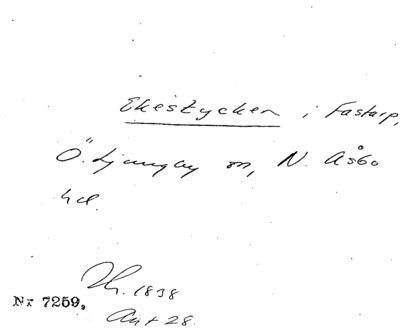 Ekestycken i Fastarp,
Ö. Ljungby sn, N. Åsbo
hd.
Nr 7259.
1838
28.